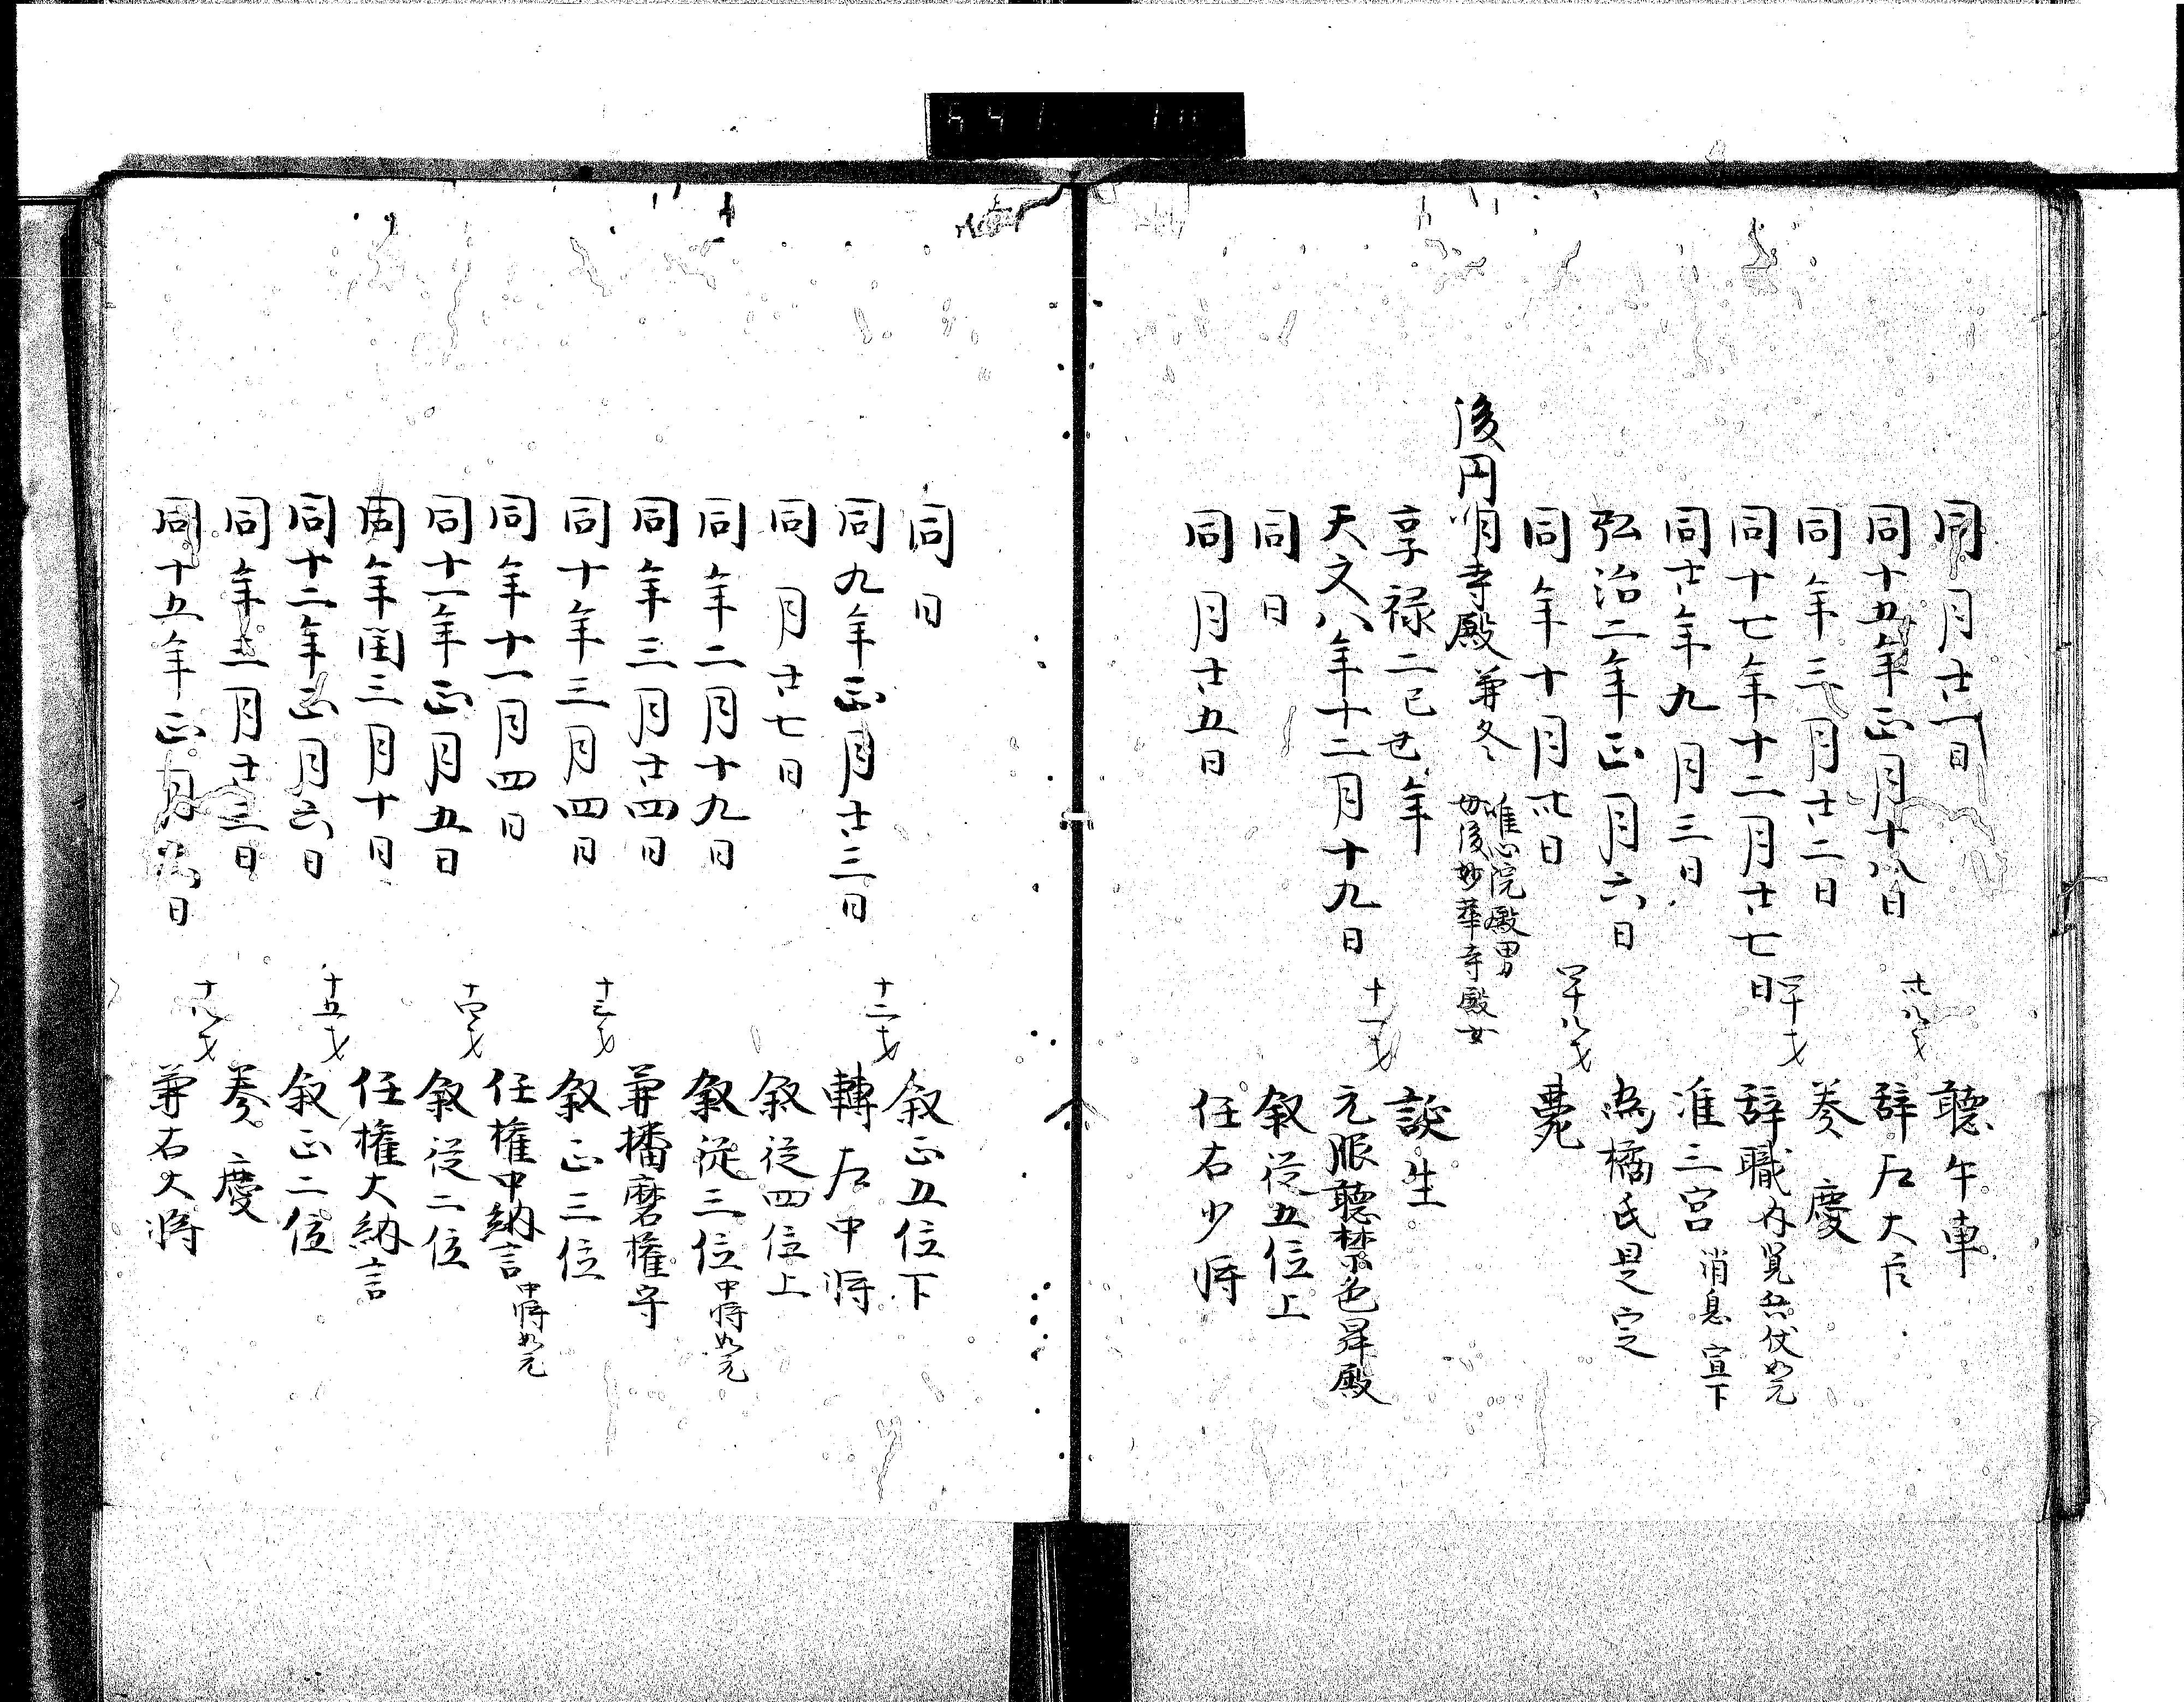 同月廿一日　聽牛車
同十五年正月十八日　卅八才　辞左大臣
同年三月廿二日　奏慶
同十七年十二月廿七日　四十才　辞職内覧兵仗如元
同廿年九月三日　准三宮　消息宣下
弘治二年正月六日　為橘氏是定
同年十月卅日　四十八才　薨
後円明寺殿　兼冬　唯心院殿男
母後妙華寺殿女
享禄二己丑年　誕生
天文八年十二月十九日　十一才　元服聽禁色昇殿
同日　叙従五位上
同月廿五日　任右少将
同日　叙正五位下
同九年正月廿三日　十二才　轉左中将
同月廿七日　叙従四位上
同年二月十九日　叙従三位　中将如元
同年三月廿四日　兼播磨権守
同十年三月四日　十三才　叙正三位
同年十一月四日　任権中納言　中将如元
同十一年正月五日　十四才　叙従二位
同年閏三月十日　任権大納言
同十二年正月六日　十五才　叙正二位
同年三月廿三日　奏慶
同十五年正月 日　十八才　兼右大将